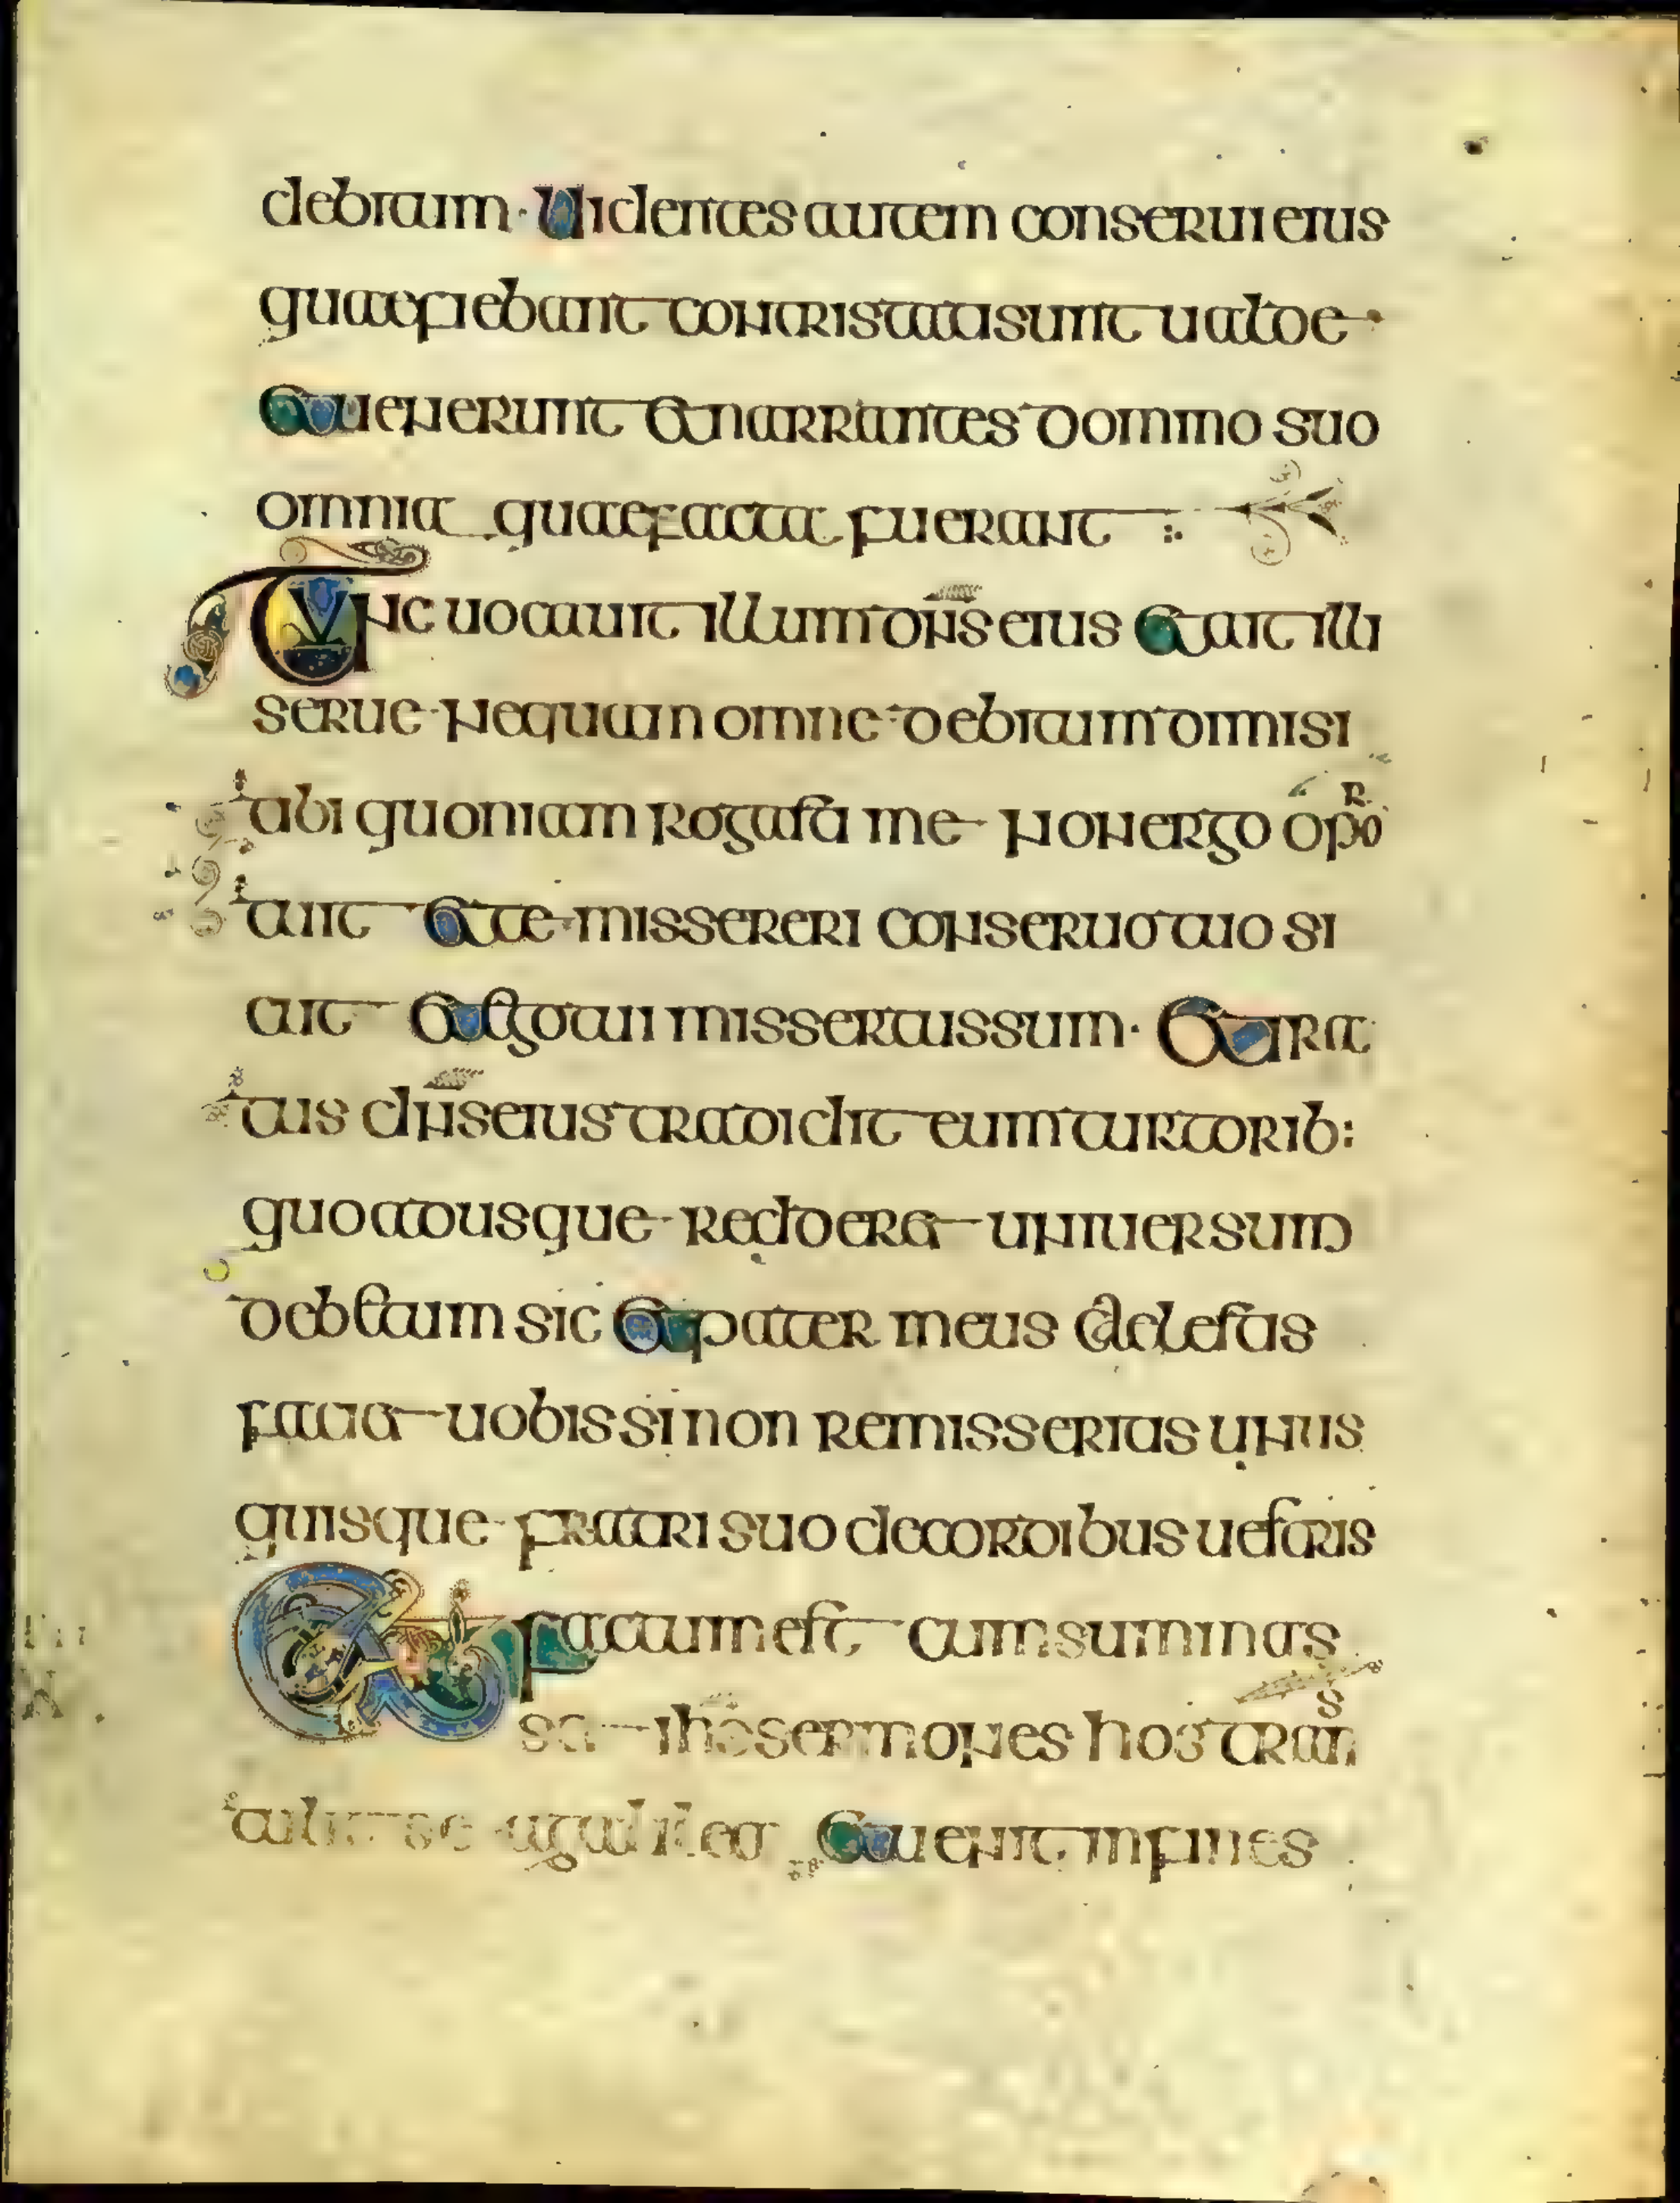 debitum · Uidentes autem conserui eius
quae fiebant contristati sunt ualde ·
Et uenerunt et narrantes domino suo
omnia quae facta fuerant :
Tunc uocauit illum dns eius et ait illi
serue nequam omne debitum dimisi
tibi quoniam rogasti me nonergo opor
tuit et te missereri conseruo tuo si
cut et ego tui missertus sum · Et ira
tus dns eius tradidit eum turtorib:
quoadusque redderet uniuersum
debitum sic et pater meus caelestis
faciet uobis si non remisseritis unus
quisque fratri suo de cordibus uestris
Et factum est cum summas
set ihs sermones hos trans
tulit se a galilea Et uenit in fines